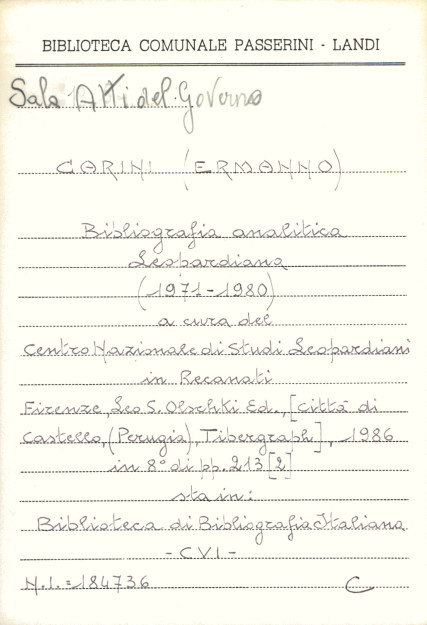 BIBLIOTECA COMUNALE PASSERINI - LANDI
Sala Atti del Governo
CARINI (ERMANNO)
Bibliografia analitica
Leopardiana
(1971-1980)
a cura del
Centro Nazionale di Studi Leopardiani
in Recanati
Firenze, Leo S. Olschki Ed., [Città di
Castello, (Perugia), Tibergraph], 1986
in 8° di pp. 213 [2]
sta in:
Biblioteca di Bibliografia Italiana
- CVI -
N.I. = 184736 C